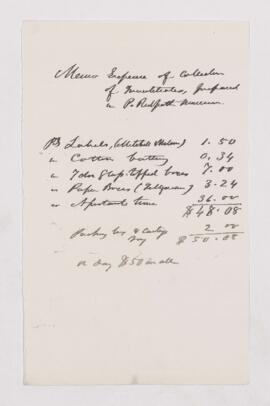 Memo Expense of Collection
of Invertebrates, prepared
in P. Redpath Museum.
Labels, (Mitchell & Wilson) 1.50
" Cotton batting 0.34
" 7 doz Glass Topped boxes 7.00
" Paper Boxes 3.24
" time 36.00
$48.08
Packing box & 2 00
$50.08
$50 in all